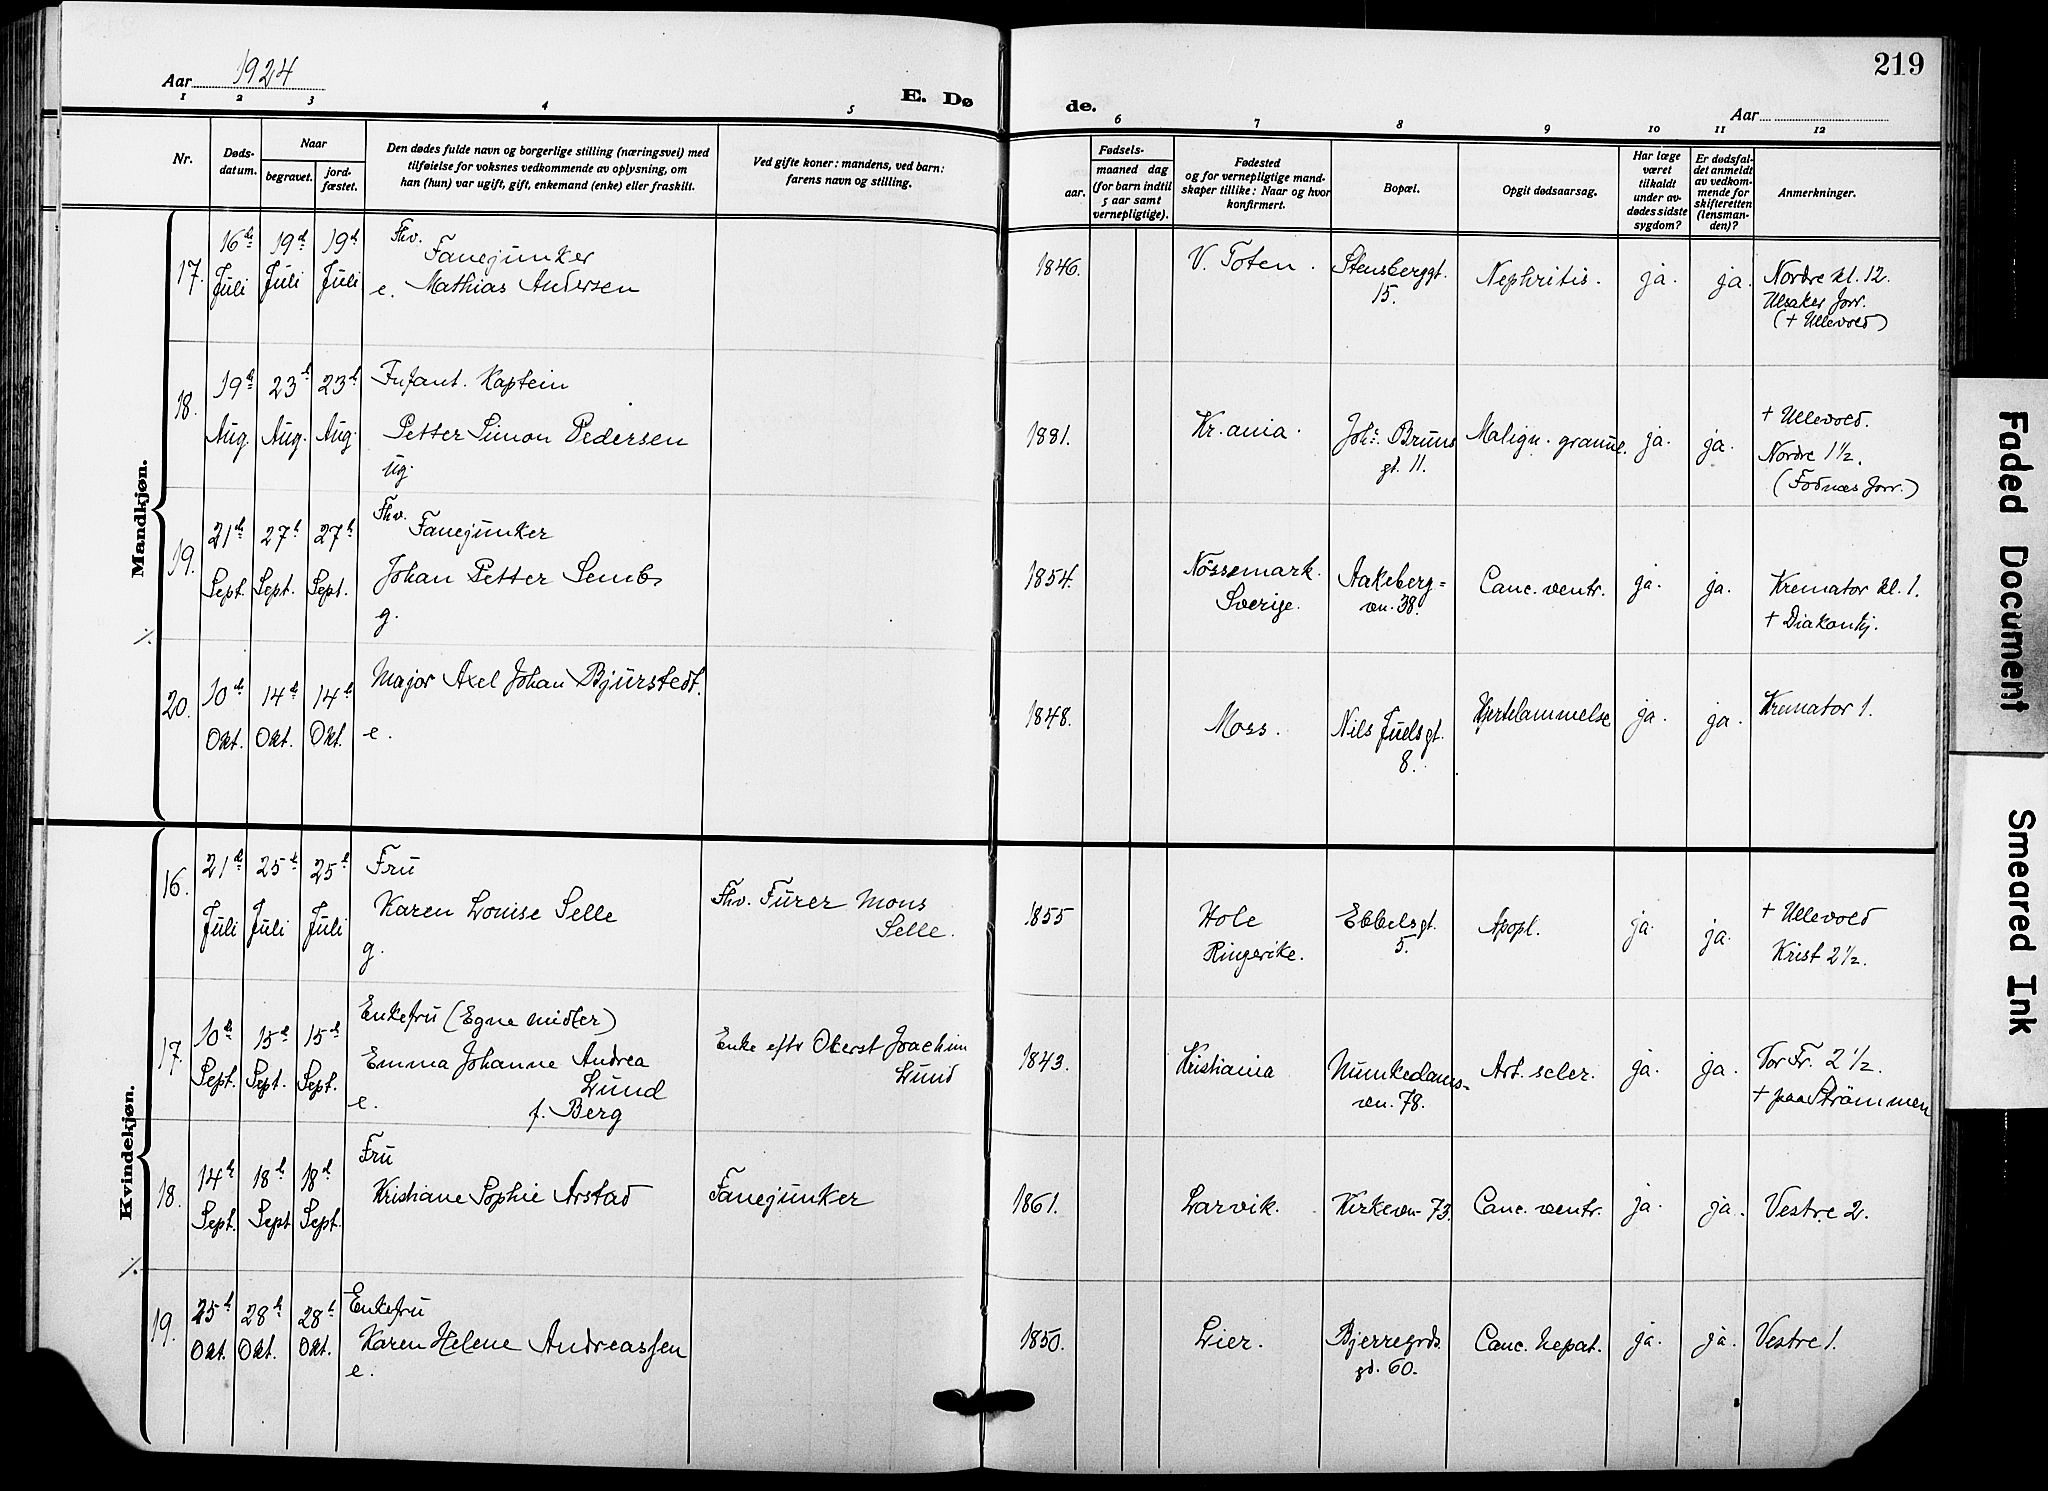 Aar 1924
E. Dø
de.
Aar
219
1 2 3 4 5
6 7 8 9 10 11 12
Nr.
Døds-
datum.
Naar
begravet.
jord-
fæstet.
Den dødes fulde navn og borgerlige stilling (næringsvei) med
tilføielse for voksnes vedkommende av oplysning, om
han (hun) var ugift, gift, enkemand (enke) eller fraskilt.
Ved gifte koner: mandens, ved barn:
farens navn og stilling.
Fødsels-
aar.
maaned dag
(for barn indtil
5 aar samt
vernepligtige).
Fødested
og for vernepligtige mand-
skaper tillike: Naar og hvor
konfirmert.
Bopæl.
Opgit dødsaarsag.
Har læge
været
tilkaldt
under av-
dødes sidste
sygdom?
Er dødsfal-
det anmeldt
av vedkom-
mende for
skifteretten
(lensman-
den)?
Anmerkninger.
Mandkjøn.
17. 16de Juli 19de Juli 19de Juli
Fhv.
Fanejunker
e. Mathias Andersen
1846. V. Toten. Stensberggt.
15.
Nephritis. ja. ja.
Nordre kl. 12.
Ulsaker forr.
(+ Ullevold)
18. 19de Aug. 23de Aug. 23de Aug.
Infant. Kaptein
Petter Simon Pedersen
ug.
1881. Kr.ania. Johs. Bruns
gt. 11.
Malign. granul. ja. ja.
+ Ullevold.
Nordre 1½.
(Fodnæs forr.)
19. 21de Sept. 27de Sept. 27de Sept.
Fhv.
Fanejunker
Johan Petter Semb
g.
1854. Nössemark.
Sverige.
Aakeberg=
vn. 38.
Canc. ventr. ja. ja.
Kremator kl. 1.
+ Diakonhj.
%
20. 10de Okt. 14de Okt. 14de Okt.
Major Axel Johan Bjurstedt.
e.
1848. Moss. Nils Juelsgt.
8.
Hjertelammelse ja. ja. Kremator 1.
Kvindekjøn.
16. 21de Juli 25de Juli 25de Juli
Fru
Karen Louise Selle
g.
Fhv. Furer Mons
Selle.
1855 Hole
Ringerike.
Ebbelsgt.
5.
Apopl. ja. ja.
+ Ullevold
Krist 2½.
17. 10de Sept. 15de Sept. 15de Sept.
Enkefru (Egne midler)
Emma Johanne Andrea
Lund
e. f. Berg
Enke eftr Oberst Joachim
Lund
1843. Kristiania Munkedams-
vn. 78.
Art. scler. ja. ja.
Vor Fr. 2½.
+ paa Strömmen
18. 14de Sept. 18de Sept 18de Sept.
Fru
Kristiane Sophie Arstad
Fanejunker
1861. Larvik. Kirkevn 73. Canc. ventr. ja. ja. Vestre 2.
%
19. 25de Okt. 28de Okt. 28de Okt.
Enkefru
Karen Helene Andreassen
e.
1850. Lier. Bjerregrds.
gd. 60.
Canc. hepat. ja. ja. Vestre 1.
Faded Document
Smeared Ink